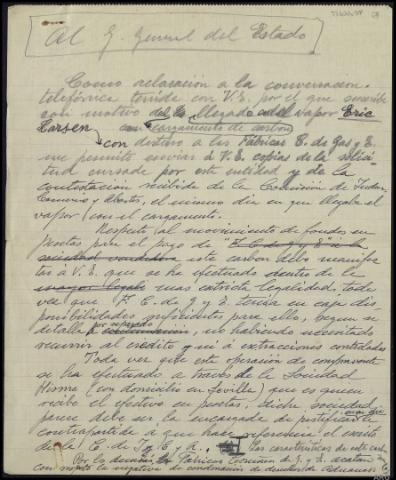 Al G. General del Estado
Como aclaración a la conversacion
telefónica tenida con V.E. por el que suscribe
con motivo de la llegada del vapor Eric
Larsen con cargamento de carbon
con destino a las Fábricas C. de Gas y E.
me permito enviar a V.E. copias de la solici-
tud cursada por esta entidad y de la
contestacion recibida de la Comisión de Indus.
Comercio y Abastos, el mismo dia en que llegaba el
vapor con el cargamento.
Respecto al movimiento de fondos en
pesetas para el pago de "F. C. de G y E" a la
sociedad vendedora este carbon debo manifes-
tar a V.E. que se ha efectuado dentro de la
mayor legali mas estricta legalidad, toda
vez que F. C. de G. y E. tenia en caja dis-
ponibilidades suficientes para ello, segun se
detalla por separado, no habiendo necesitado
recurrir al crédito y ni a extracciones controladas
Toda vez que esta operación de compraventa
se ha efectuado a través de la Sociedad
Hisma (con domicilio en Sevilla) que es quien
recibe el efectivo en pesetas, dicha sociedad
parece debe ser la encargada de justificar la
contrapartida a que hace referencia el escrito
de la C. de I. C. y A. Las caracteristicas de este carbon
Por lo demás las Fábricas Coruñesas de G. y E. acatan
con respeto la negativa de condonación de derechos de Aduanas